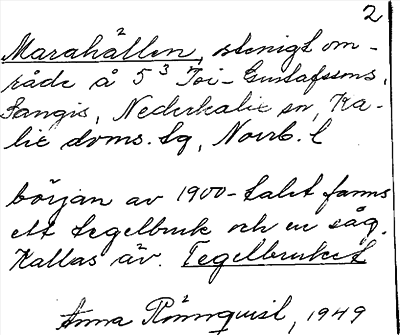 2
Marahällen, stenigt om-
råde å 5³ Joi-Gustafssons,
Sangis, Nederkalix sn, Ka-
lix doms. tg, Norrb. l
början av 1900-talet fanns
ett tegelbruk och en såg.
Kallas äv. Tegelbruket
Anna Rönnquist, 1949